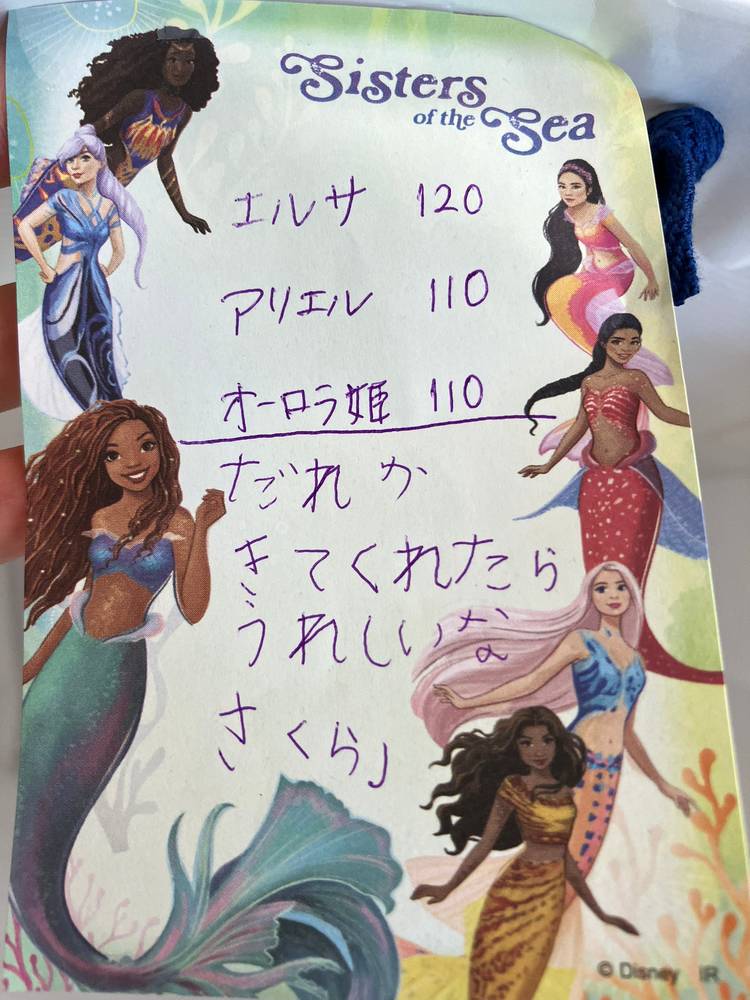 Sisters
of the Sea
エルサ 120
アリエル 110
オーロラ姫 110
だれか
きてくれたら
うれしいな
さくら」
© Disney IR